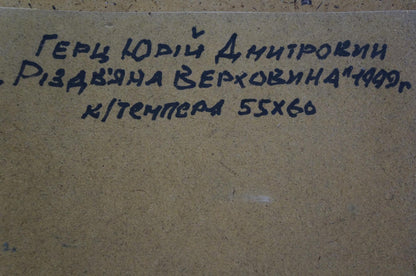 Герц Юрій Дмитрович
„Різдв'яна Верховина" 1999 г
к/темпера 55х60